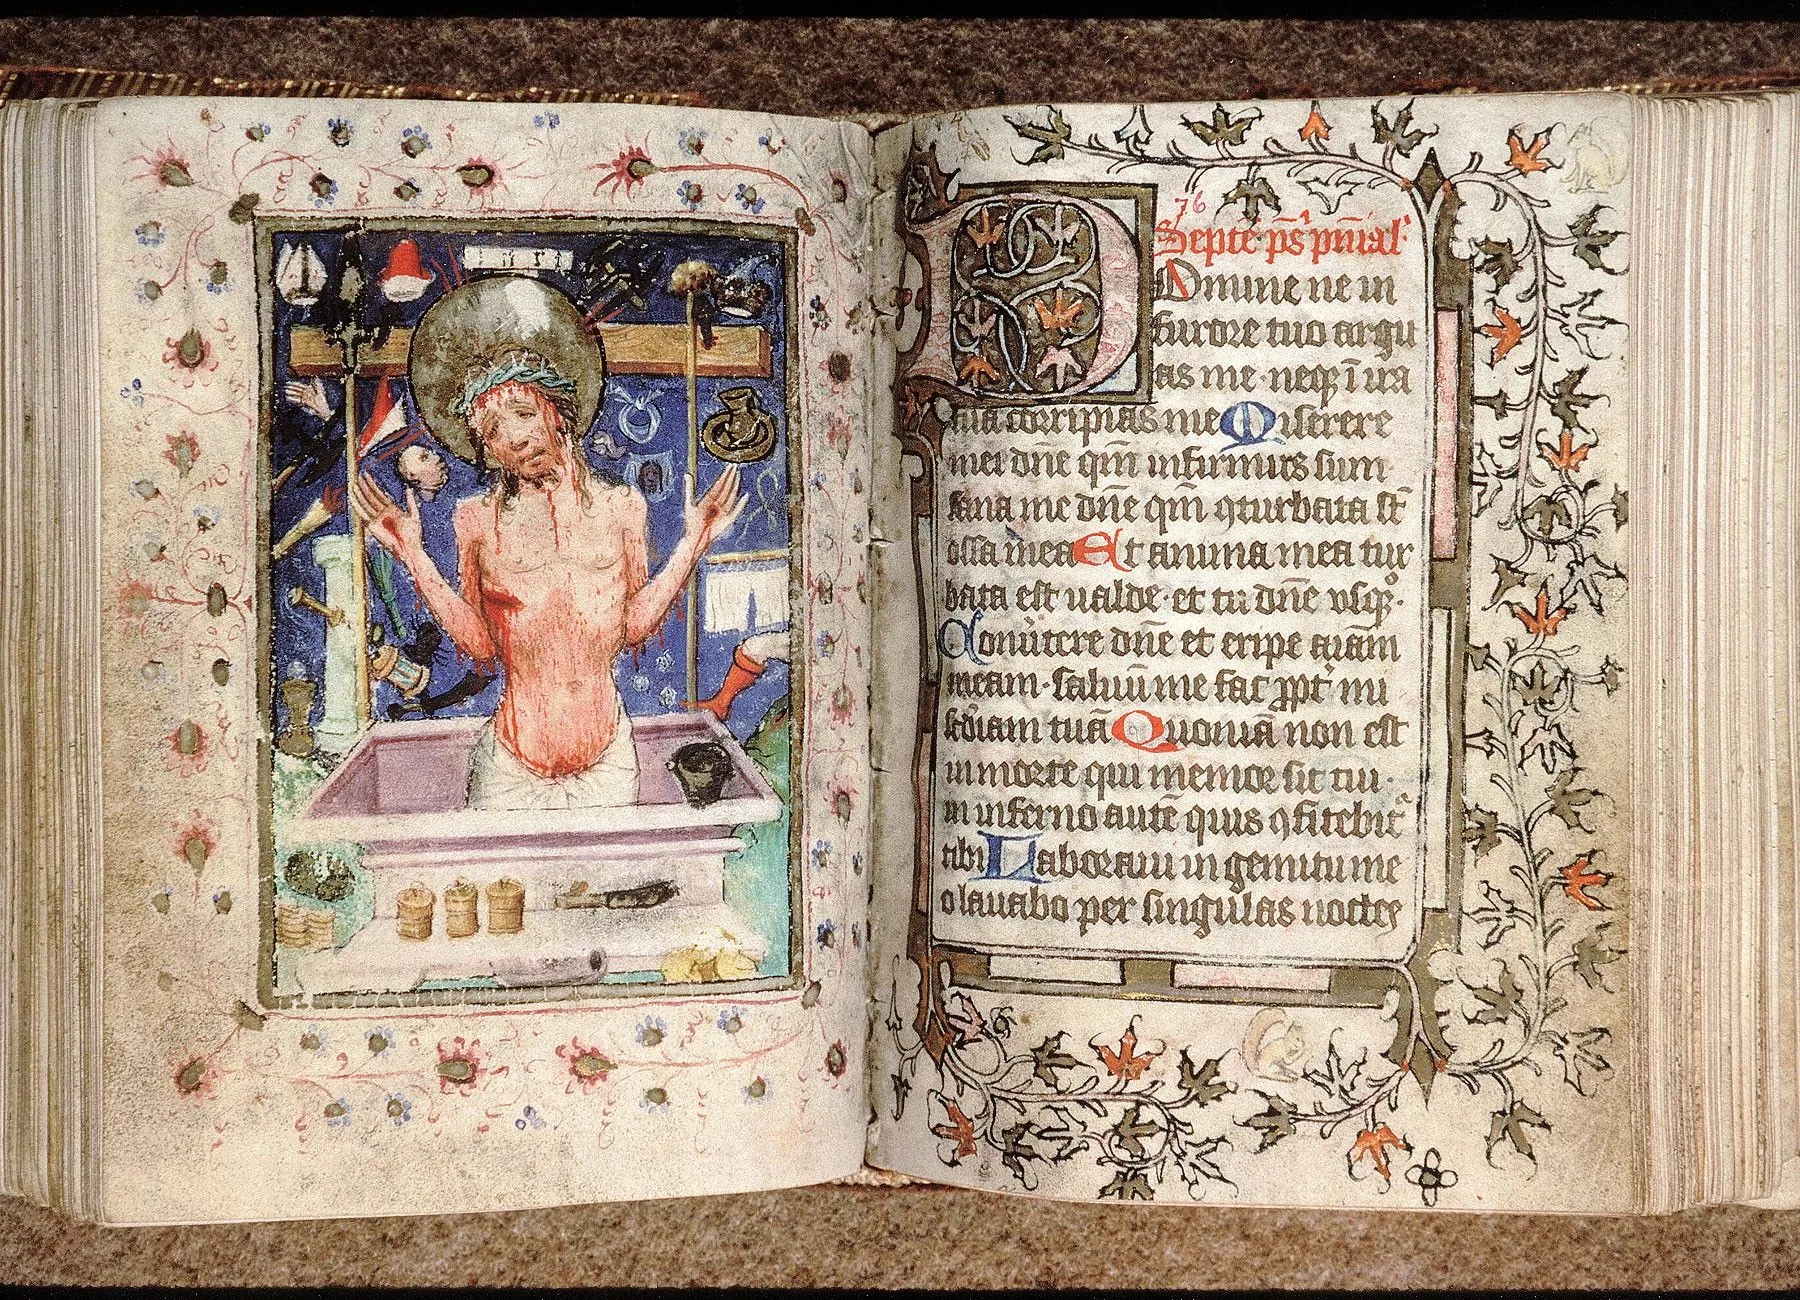 INRI
76
Septe ps pnial'
Domine ne in
furore tuo argu
as me · neq₃ ī ira
tua corripias me Miserere
mei dn̄e qm̄ infirmus sum
sana me dn̄e qm̄ ꝯturbata st̄
ossa mea Et anima mea tur
bata est ualde · et tu dn̄e usq₃ ·
Conuitere dn̄e et eripe aīam
meam · saluū me fac ꝓpt' mi
sc̄diam tuā Quoniā non est
in morte qui memor sit tui ·
in inferno autē quis ꝯfitebit'
tibi Laboraui in gemitu me
o lauabo per singulas noctes